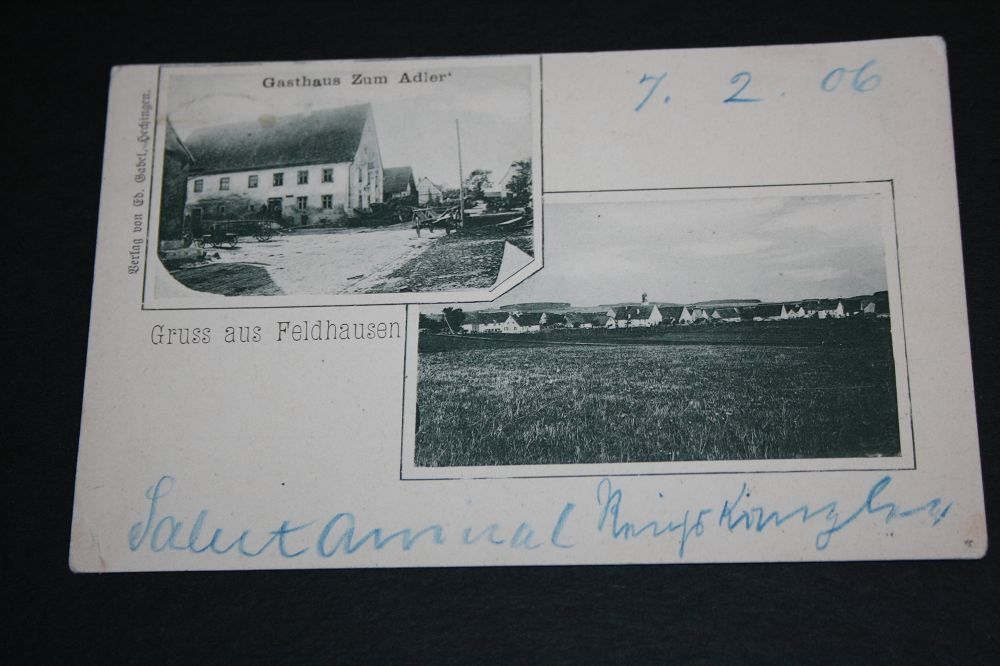 Gasthaus Zum Adler
7. 2. 06
Verlag von Ed. Gabel, Hechingen.
Gruss aus Feldhausen
Salut